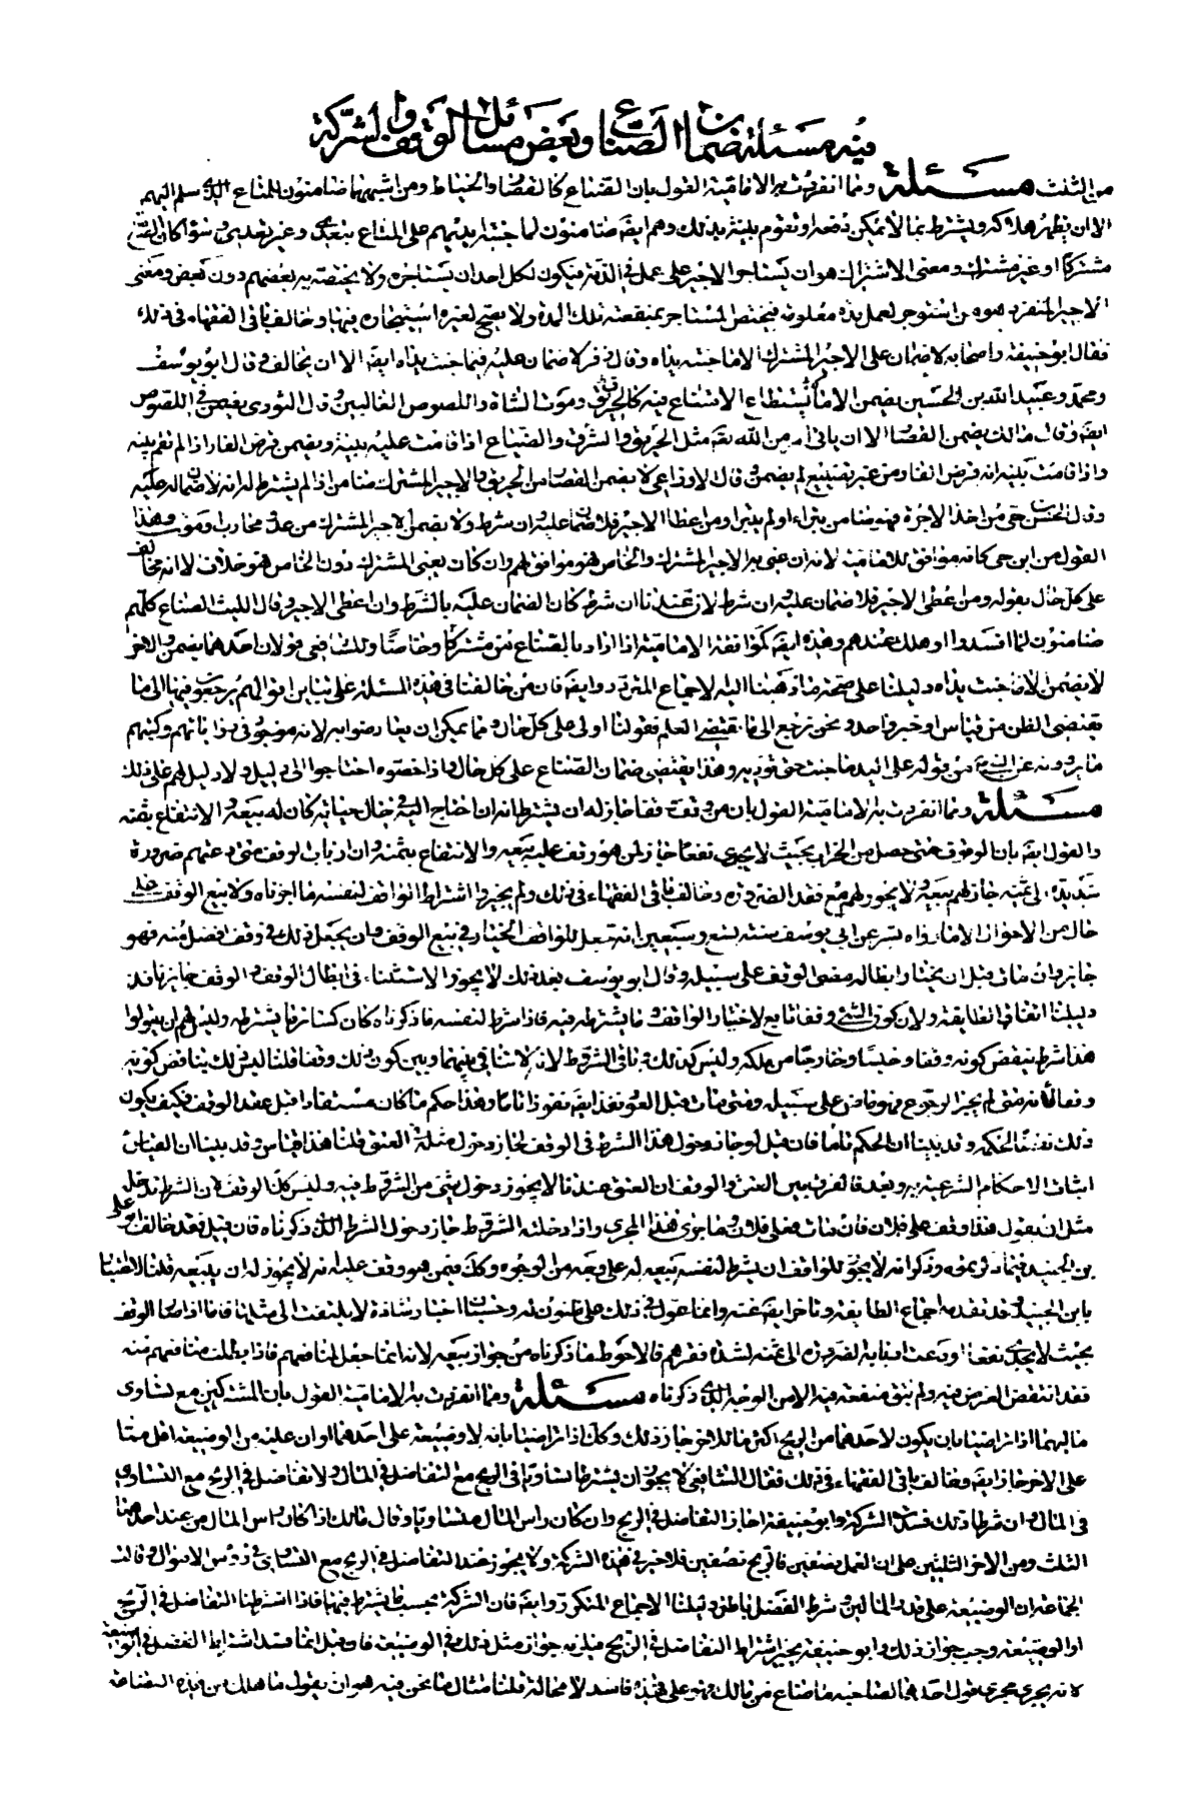 فيه مسئلة ضمان الصناع وبعض مسائل الوقف والشركة
من الثلث مسئلة ومما انفردت به الامامية القول بان الصناع كالقصار والخياط ومن اشبههما ضامنون للمتاع الذي سلم اليهم
الا ان يظهر هلاكه ويشتهر بما لا يمكن دفعه او تقوم بينة بذلك وهم ايضا ضامنون لما جنته ايديهم على المتاع بتعد وغير تعد وسواء كان الصانع
مشتركا او غير مشترك ومعنى الاشتراك هو ان يستاجر الاجير على عمل في الذمة فيكون لكل احد ان يستاجره ولا يختص به بعضهم دون بعض ومعنى
الاجير المنفرد هو من استوجر لعمل مدة معلومة فيختص المستاجر بمنفعته تلك المدة ولا يصح لغيره استيجاره فيها وخالف باقي الفقهاء في ذلك
فقال ابو حنيفة واصحابه لا ضمان على الاجير المشترك الا ما جنته يداه وقال زفر لا ضمان عليه فيما جنت يداه ايضا الا ان يخالف وقال ابو يوسف
ومحمد وعبيد الله بن الحسين يضمن الا ما لا يستطاع الامتناع منه كالحريق وموت الشاة واللصوص الغالبين وقال الثوري يضمن في اللصوص
ايضا وقال مالك يضمن القصار الا ان ياتي امر من الله تعالى مثل الحريق والسرق والضياع اذا قامت عليه بينة ويضمن قرض الفار اذا لم تقم بينة
واذا قامت بينة انه قرض الفار من غير تضييع لم يضمن وقال الاوزاعي لا يضمن القصار من الحريق والاجير المشترك ضامن اذا لم يشترط له انه لا ضمان عليه
وقال الحسن بن حي من اخذ الاجرة فهو ضامن تبرأ او لم يتبرأ ومن اعطى الاجر فلا ضمان عليه وان شرط ولا يضمن الاجير المشترك من عدو محارب او موت وهذا
القول من ابن حي كانه موافق للامامية لانه ان عنى بالاجير المشترك والخاص فهو موافق لهم وان كان يعني المشترك دون الخاص فهو خلاف لانه مخالف
على كل حال بقوله ومن اعطى الاجر فلا ضمان عليه وان شرط لان عندنا ان شرط كان الضمان عليه بالشرط وان اعطى الاجر وقال الليث الصناع كلهم
ضامنون لما افسدوا او هلك عندهم وهذه ايضا كموافقة الامامية اذا اراد بالصناع من كان مشتركا وخاصا وللشافعي قولان احدهما يضمن والاخر
لا يضمن الا ما جنت يداه دليلنا على صحة ما ذهبنا اليه الاجماع المتردد وايضا فان من خالفنا في هذه المسئلة على تباين اقوالهم يرجعون فيها الى ما
يقتضي الظن من قياس او خبر واحد ونحن نرجع الى ما يقتضي العلم فقولنا اولى على كل حال ومما يمكن ان يعارضوا به لانه موجود في رواياتهم وكتبهم
ما يروونه عن النبي من قوله على اليد ما جنت حتى تؤديه وهذا يقتضي ضمان الصناع على كل حال فاذا خصوه احتاجوا الى دليل ولا دليل لهم على ذلك
مسئلة ومما انفردت به الامامية القول بان من وقف وقفا جاز له ان يشترط انه ان احتاج اليه في حال حياته كان له بيعه والانتفاع بثمنه
والقول ايضا بان الوقف متى حصل من الخراب بحيث لا يجدي نفعا جاز لمن هو وقف عليه بيعه والانتفاع بثمنه وان ارباب الوقف متى دعتهم ضرورة
شديدة الى ثمنه جاز لهم بيعه ولا يجوز لهم مع فقد الضرورة وخالف باقي الفقهاء في ذلك ولم يجيزوا اشتراط الواقف لنفسه ما اجزناه ولا بيع الوقف على
حال من الاحوال الا ما رواه بشر عن ابي يوسف سنة تسع وسبعين انه جعل للواقف الخيار في بيع الوقف وان يجعل ذلك في وقف افضل منه فهو
جائز وان مات قبل ان يختار ابطاله مضى الوقف على سبيله وقال ابو يوسف بعد ذلك لا يجوز الاستثناء في ابطال الوقف والوقف جائز نافذ
دليلنا اتفاق الطايفة ولان كون الشيء وقفا تابع لاختيار الواقف وما يشترطه فيه فاذا شرط لنفسه ما ذكرناه كان كسائر ما يشترطه وليس لهم ان يقولوا
هذا شرط ينقض كونه وقفا وحبسا وخارجا من ملكه وليس كذلك باقي الشروط لانه لا تنافي بينهما وبين كون ذلك وقفا قلنا ليس ذلك يناقض كونه
وقفا لأنه متى لم يختر الرجوع فهو ماض على سبيله ومتى مات قبل العود نفذ ايضا نفوذا تاما وهذا حكم ما كان مستفادا قبل عقد الوقف فكيف يكون
ذلك نقضا لحكمه وقد بينا ان الحكم تاما فان قيل لو جاز دخول هذا الشرط في الوقف لجاز دخول مثله في العتق قلنا هذا قياس وقد بينا ان القياس
اثبات الاحكام الشرعية به وبعد فالفرق بين العتق والوقف ان العتق عندنا لا يجوز دخول شيء من الشروط فيه وليس كذلك الوقف لان الشرط تدخله
مثل ان يقول هذا وقف على فلان فان مات فعلى فلان وما جرى هذا المجرى واذا دخلته الشروط جاز دخول الشرط الذي ذكرناه فان قيل فقد خالف ابو علي
بن الجنيد فيما ذكرتموه وذكر انه لا يجوز للواقف ان يشرط لنفسه بيعه له على وجه من الوجوه وكذلك فيمن هو وقف عليه انه لا يجوز له ان يبيعه قلنا لا اعتبار
بابن الجنيد وقد تقدمه اجماع الطايفة وتاخر ايضا عنه وانما عول في ذلك على ظنون له وحسبان واخبار شاذة لا يلتفت الى مثلها فاما اذا صار الوقف
بحيث لا يجدي نفعا او دعت اربابه الضرورة الى ثمنه لشدة فقرهم فالاحوط ما ذكرناه من جواز بيعه لانه انما جعل لمنافعهم فاذا بطلت منافعهم منه
فقد انتقض الغرض فيه ولم يبق منفعة فيه الا من الوجه الذي ذكرناه مسئلة ومما انفردت به الامامية القول بان المشتركين مع تساوي
ماليهما اذا تراضيا بان يكون لاحدهما من الربح اكثر مما للاخر جاز ذلك وكذلك اذا تراضيا بانه لا وضيعة على احدهما او ان عليه من الوضيعة اقل مما
على الاخر جاز ايضا وخالف باقي الفقهاء في ذلك فقال الشافعي لا يجوز ان يشترطا تساويا في الربح مع التفاضل في المال ولا تفاضل في الربح مع التساوي
في المال وان شرطا ذلك فسدت الشركة وابو حنيفة اجاز التفاضل في الربح وان كان راس المال متساويا وقال مالك اذا كان راس المال من عند احدهما
الثلث ومن الاخر الثلثين على ان العمل نصفين فالربح نصفين فلا خير في هذه الشركة ولا يجوز عنده التفاضل في الربح مع التساوي في رؤس الاموال وقالت
الجماعة ان الوضيعة على قدر المالين وشرط الفضل باطل دليلنا الاجماع المتكرر وايضا فان الشركة بحسب ما يشترط فيها فاذا اشترطنا التفاضل في الربح
او الوضيعة وجب جواز ذلك وابو حنيفة يجيز اشتراط التفاضل في الربح فيلزمه جواز مثل ذلك في الوضيعة فان قيل انما فسد اشتراط الفضل في الوضيعة
لانه يجري مجرى قول احدهما لصاحبه ما ضاع من مالك فهو علي وهذا فاسد لا محالة قلنا مثال ما نحن فيه هو ان يقول ما هلك من هذه البضاعة